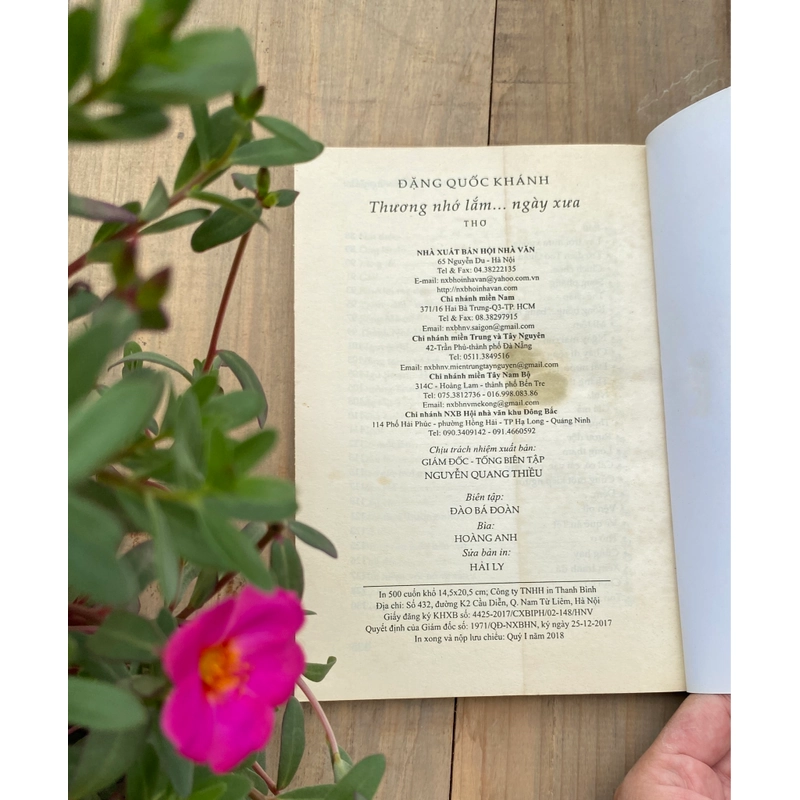 ĐẶNG QUỐC KHÁNH
Thương nhớ lắm... ngày xưa
THƠ
NHÀ XUẤT BẢN HỘI NHÀ VĂN
65 Nguyễn Du - Hà Nội
Tel & Fax: 04.38222135
E-mail: nxbhoinhavan@yahoo.com.vn
http://nxbhoinhavan.com
Chi nhánh miền Nam
371/16 Hai Bà Trưng-Q3-TP. HCM
Tel & Fax: 08.38297915
Email: nxbhnv.saigon@gmail.com
Chi nhánh miền Trung và Tây Nguyên
42-Trần Phú-thành phố Đà Nẵng
Tel: 0511.3849516
Email: nxbhnv.mientrungtaynguyen@gmail.com
Chi nhánh miền Tây Nam Bộ
314C - Hoàng Lam - thành phố Bến Tre
Tel: 075.3812736 - 016.998.083.86
Email: nxbhnvmekong@gmail.com
Chi nhánh NXB Hội nhà văn khu Đông Bắc
114 Phố Hải Phúc - phường Hồng Hải - TP Hạ Long - Quảng Ninh
Tel: 090.3409142 - 091.4660592
Chịu trách nhiệm xuất bản:
GIÁM ĐỐC - TỔNG BIÊN TẬP
NGUYỄN QUANG THIỀU
Biên tập:
ĐÀO BÁ ĐOÀN
Bìa:
HOÀNG ANH
Sửa bản in:
HẢI LY
In 500 cuốn khổ 14,5x20,5 cm; Công ty TNHH in Thanh Bình
Địa chỉ: Số 432, đường K2 Cầu Diễn, Q. Nam Từ Liêm, Hà Nội
Giấy đăng ký KHXB số: 4425-2017/CXBIPH/02-148/HNV
Quyết định của Giám đốc số: 1971/QĐ-NXBHN, ký ngày 25-12-2017
In xong và nộp lưu chiểu: Quý I năm 2018